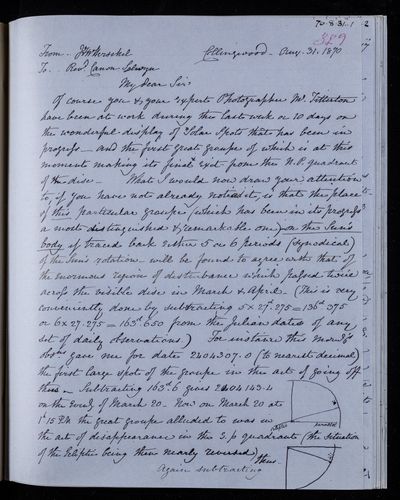 70-8-31.1
389
From - JFWHerschel Collingwood - Aug. 31. 1870
To - Revd. Canon Selwyn
My dear Sir
Of course you & your expert Photographer Mr. Titterton
have been at work during the last week or 10 days on
the wonderful display of Solar Spots that has been in
progress - And the first great groupe of which is at this
moment making its final exit from the N.P. quadrant
of the disc - What I would now draw your attention
to, if you have not already noticed it, is that the place
of this particular groupe (which has been in its progress
a most distinguished & remarkable one) on the Sun's
body if traced back either 5 or 6 periods (synodical)
of the Sun's rotation will be found to agree with that of
the enormous region of disturbance which passed twice
across the visible disc in March & April - (This is very
conveniently done by subtracting 5 x 27d.275 = 136d.375
or 6 x 27.275 = 163d.650 from the Julian dates of any
set of daily observations.) For instance this morng's
obsns gave me for date 2404307.0 (to nearest decimal)
the first large spot of the groupe in the act of going off
thus - Subtracting 163d.6 gives 2404143.4
on the Evng of March 20 - Now on March 20 at
1h 15m the great groupe alluded to was in
the act of disappearance in the S.p quadrant (the situation
of the Ecliptic being then nearly reversed) thus
Again subtracting